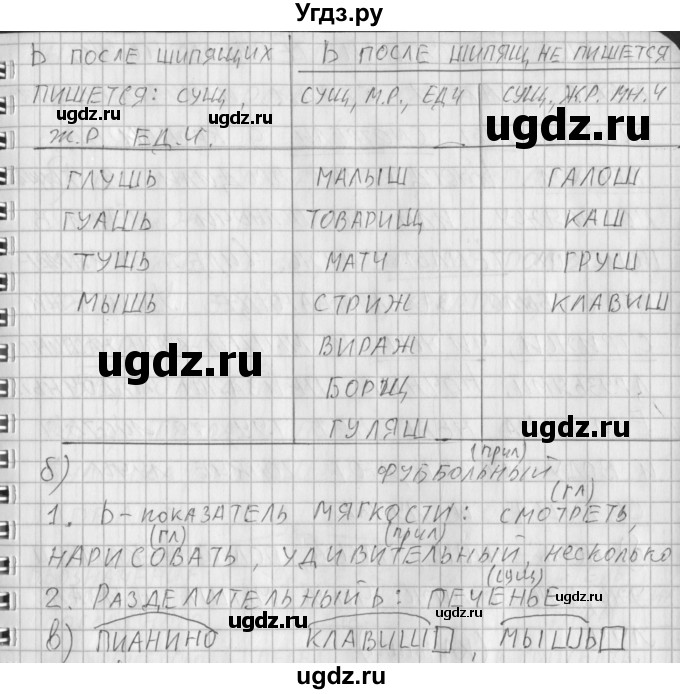 Угдз.ру
Ь ПОСЛЕ ШИПЯЩИХ Ь ПОСЛЕ ШИПЯЩ НЕ ПИШЕТСЯ
ПИШЕТСЯ: СУЩ, СУЩ, М.Р., ЕДЧ СУЩ, Ж.Р. МН.Ч
ugdz.ru ugdz.ru ugdz.ru
Ж.Р ЕД.Ч.
ГЛУШЬ МАЛЫШ ГАЛОШ
ГУАШЬ ТОВАРИЩ КАШ
ТУШЬ МАТЧ ГРУШ
МЫШЬ СТРИЖ КЛАВИШ
ugdz.ru ВИРАЖ
БОРЩ
ГУЛЯШ ugdz.ru
(прил)
б) ФУТБОЛЬНЫЙ
(гл)
1. Ь-ПОКАЗАТЕЛЬ МЯГКОСТИ: СМОТРЕТЬ,
(гл) (прил)
НАРИСОВАТЬ, УДИВИТЕЛЬНЫЙ, несколько
(сущ)
2. РАЗДЕЛИТЕЛЬНЫЙ Ь: ПЕЧЕНЬЕ ugdz.ru
в) ПИАНИНО КЛАВИШ, МЫШЬ
ugdz.ru ugdz.ru ugdz.ru